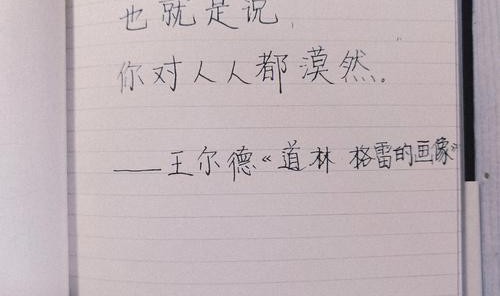 也就是说，
你对人人都漠然。
——王尔德《道林 格雷的画像》